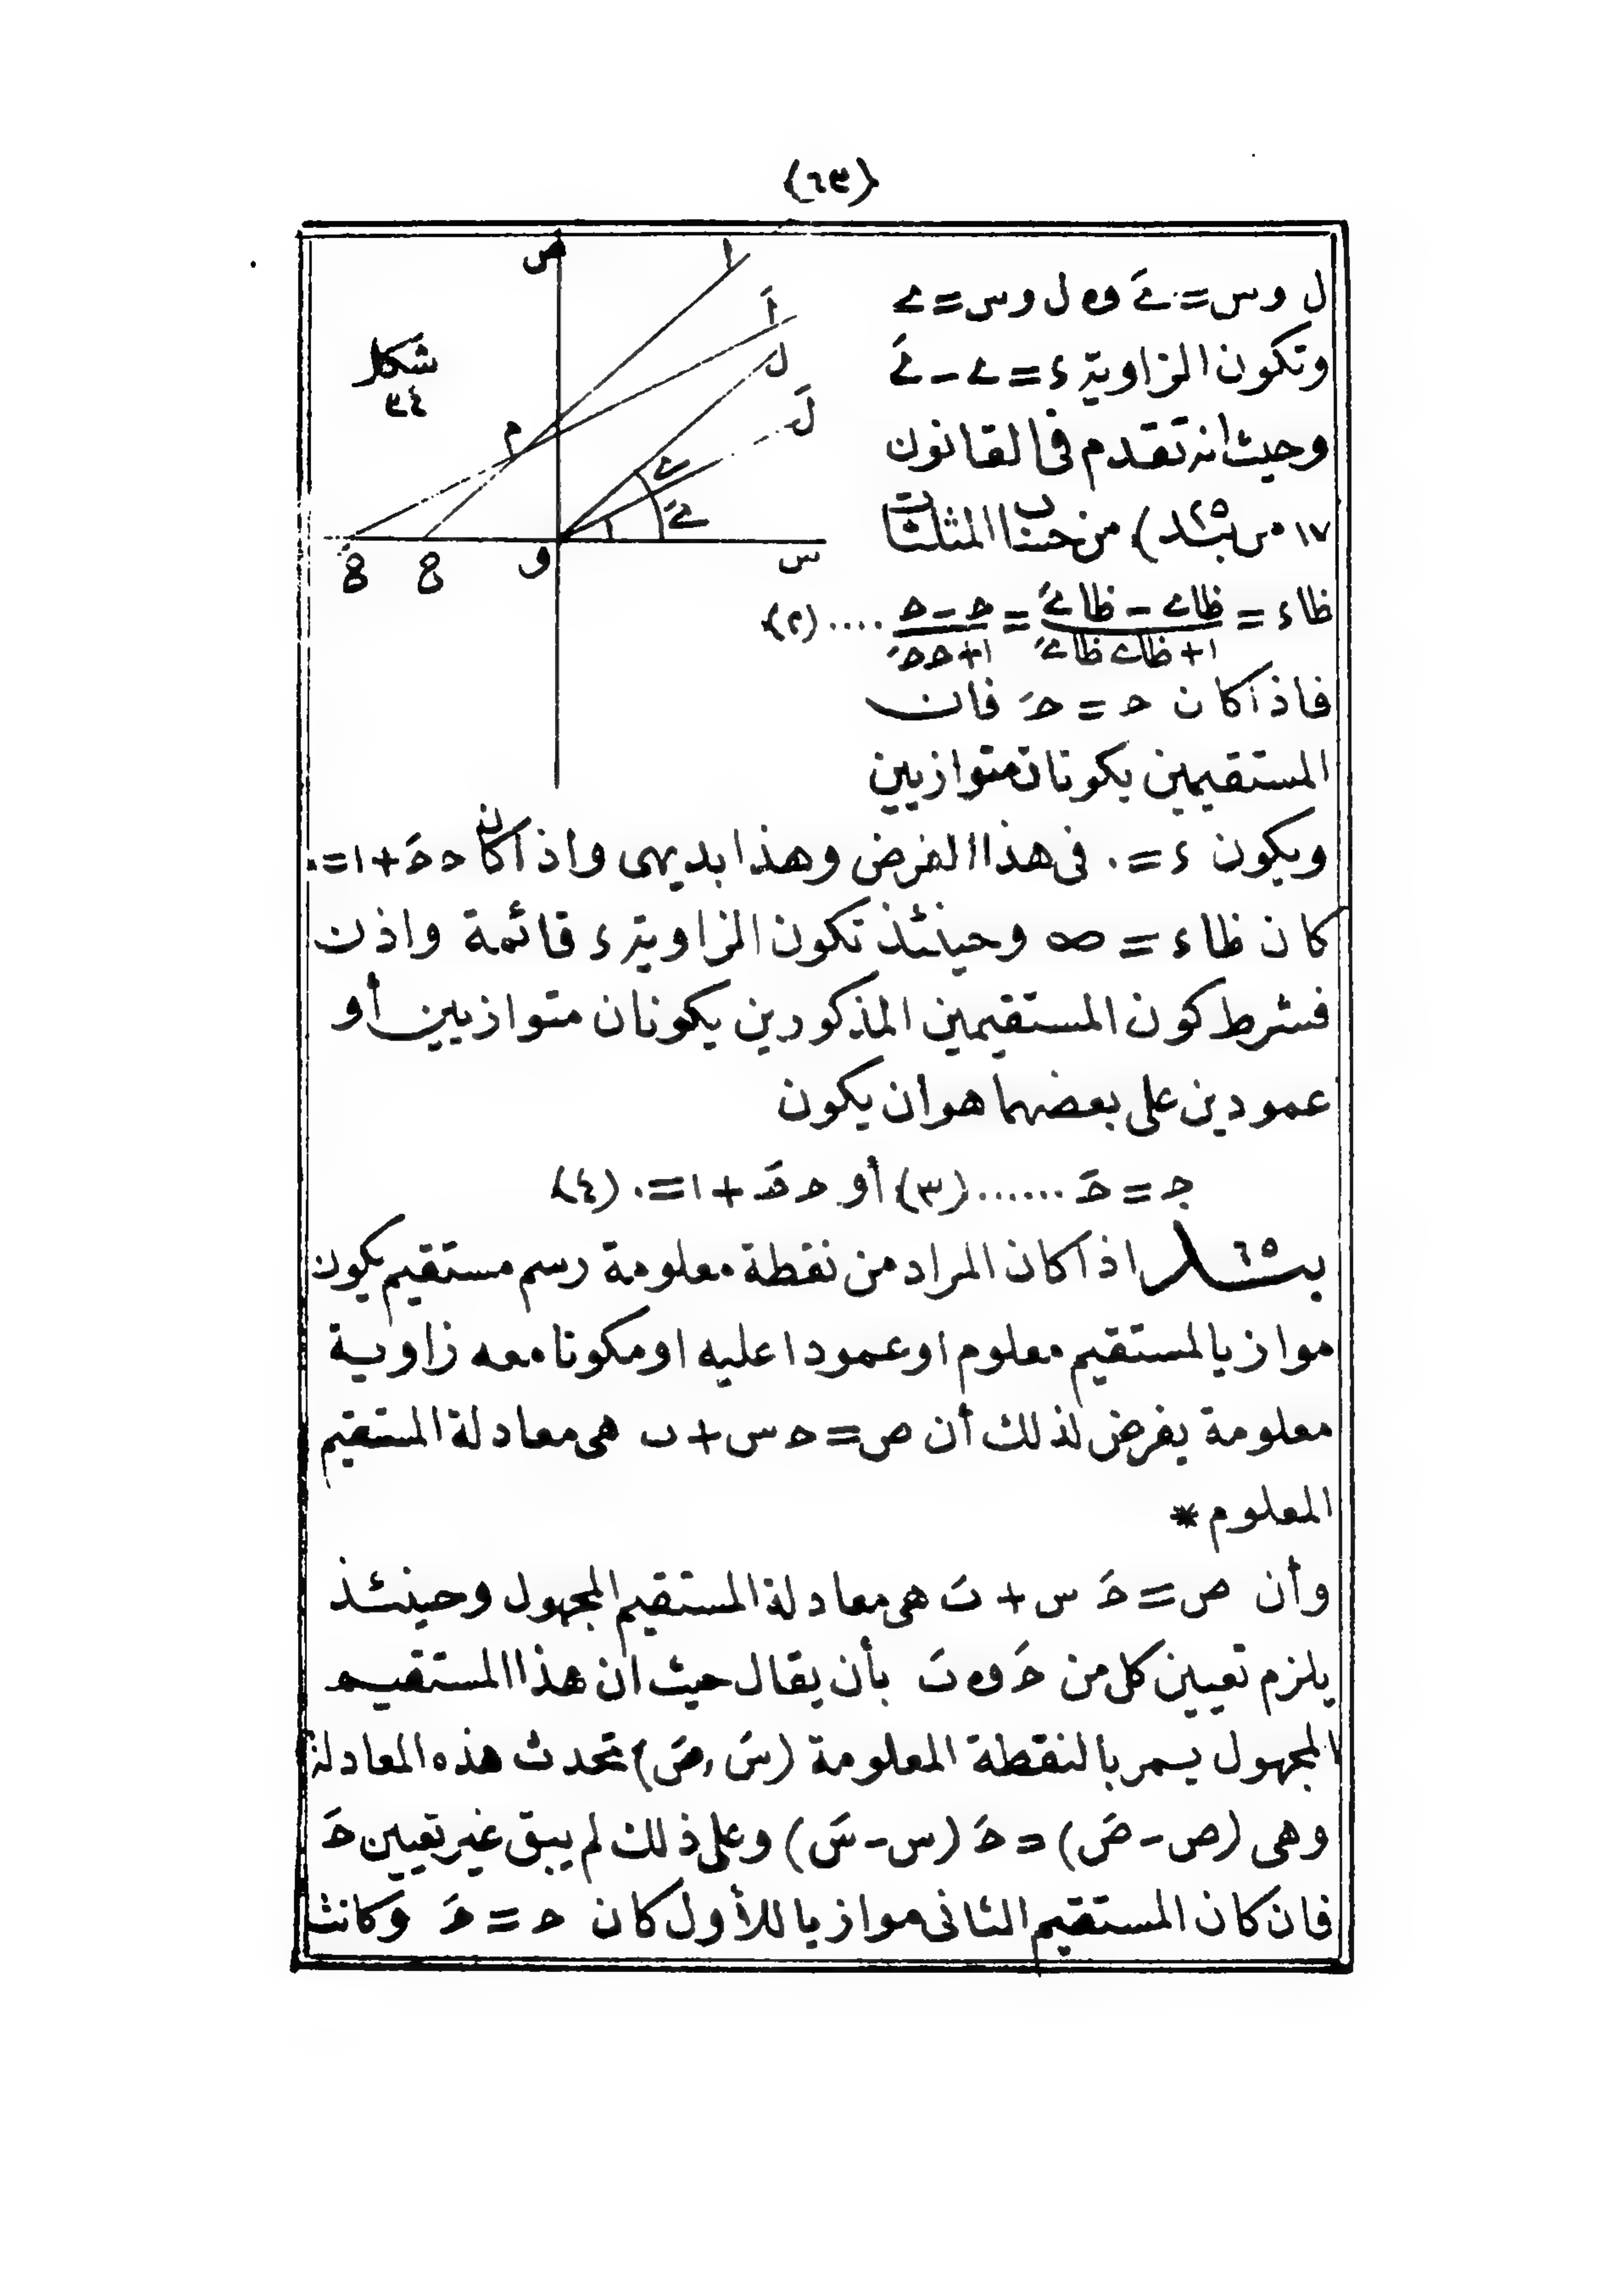 (٦٣)
ص
ا
اَ
ل
لَ
شكل
٣٤
م
ى
ىَ
س
و
ع
عَ
ل و س = ىَ و ل و س = ى
وتكون الزاوية ء = ى - ىَ
وحيث انه تقدم فى القانون
١٧ من بند ٢٥) من حساب المثلثات
ظاء = (ظاى - ظاىَ)/(١ + ظاى ظاىَ) = (حـ - حـَ)/(١ + حـ حـَ) .... (٢)
فاذا كان حـ = حـَ فان
المستقيمين يكونان متوازيين
ويكون ء = ٠ فى هذا الفرض وهذا بديهى واذا كان حـ حـَ + ١ = ٠
كان ظاء = ∞ وحينئذ تكون الزاوية ء قائمة واذن
فشرط كون المستقيمين المذكورين يكونان متوازيين أو
عمودين على بعضهما هو ان يكون
جـ = حـَ ...... (٣) أو حـ حـَ + ١ = ٠ (٤)
بند ٦٥ اذا كان المراد من نقطة معلومة رسم مستقيم يكون
موازيا لمستقيم معلوم او عمودا عليه او مكونا معه زاوية
معلومة يفرض لذلك أن ص = حـ س + ب هى معادلة المستقيم
المعلوم *
وأن ص = حـَ س + بَ هى معادلة المستقيم المجهول وحينئذ
يلزم تعيين كل من حـَ و بَ بأن يقال حيث ان هذا المستقيم
المجهول يمر بالنقطة المعلومة (سَ , صَ) تحدث هذه المعادلة
وهى (ص - صَ) = حـَ (س - سَ) وعلى ذلك لم يبق غير تعيين حـَ
فان كان المستقيم الثانى موازيا للأول كان حـ = حـَ وكانت